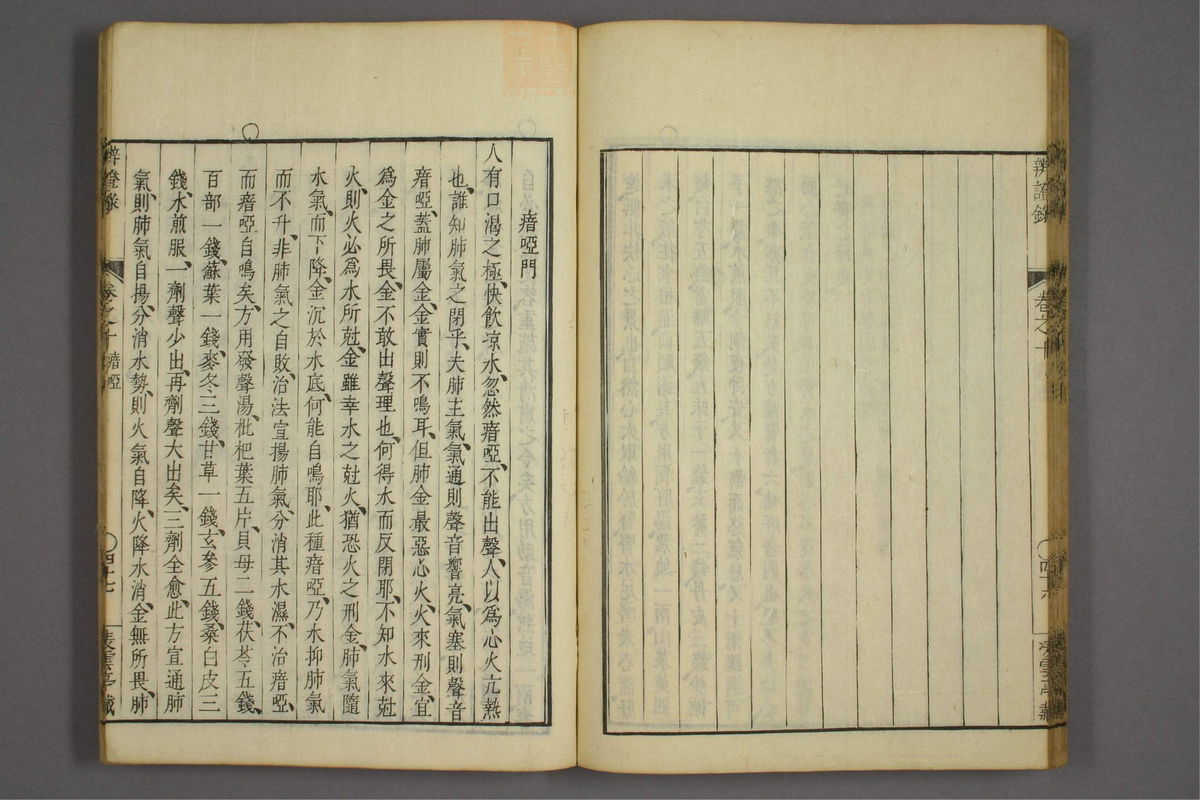 辨證錄
卷之十
瘖啞門
人有口渴之極、快飲凉水、忽然瘖啞、不能出聲、人以爲心火亢熱
也、誰知肺氣之閉乎、夫肺主氣、氣通則聲音響亮、氣塞則聲音
瘖啞、蓋肺屬金、金實則不鳴耳、但肺金最惡心火、火來刑金、宜
爲金之所畏、金不敢出聲理也、何得水而反閉耶、不知水來尅
火、則火必爲水所尅、金雖幸水之尅火、猶恐火之刑金、肺氣隨
水氣、而下降、金沉於水底、何能自鳴耶、此種瘖啞、乃水抑肺氣
而不升、非肺氣之自敗、治法宣揚肺氣、分消其水濕、不治瘖啞、
而瘖啞自鳴矣、方用發聲湯、枇杷葉五片、貝母二錢、茯苓五錢、
百部一錢、蘇葉一錢、麥冬三錢、甘草一錢、玄參五錢、桑白皮三
錢、水煎服、一劑聲少出、再劑聲大出矣、三劑全愈、此方宣通肺
氣、則肺氣自揚、分消水勢、則火氣自降、火降水消、金無所畏、肺
卷之十 瘖啞
四十七